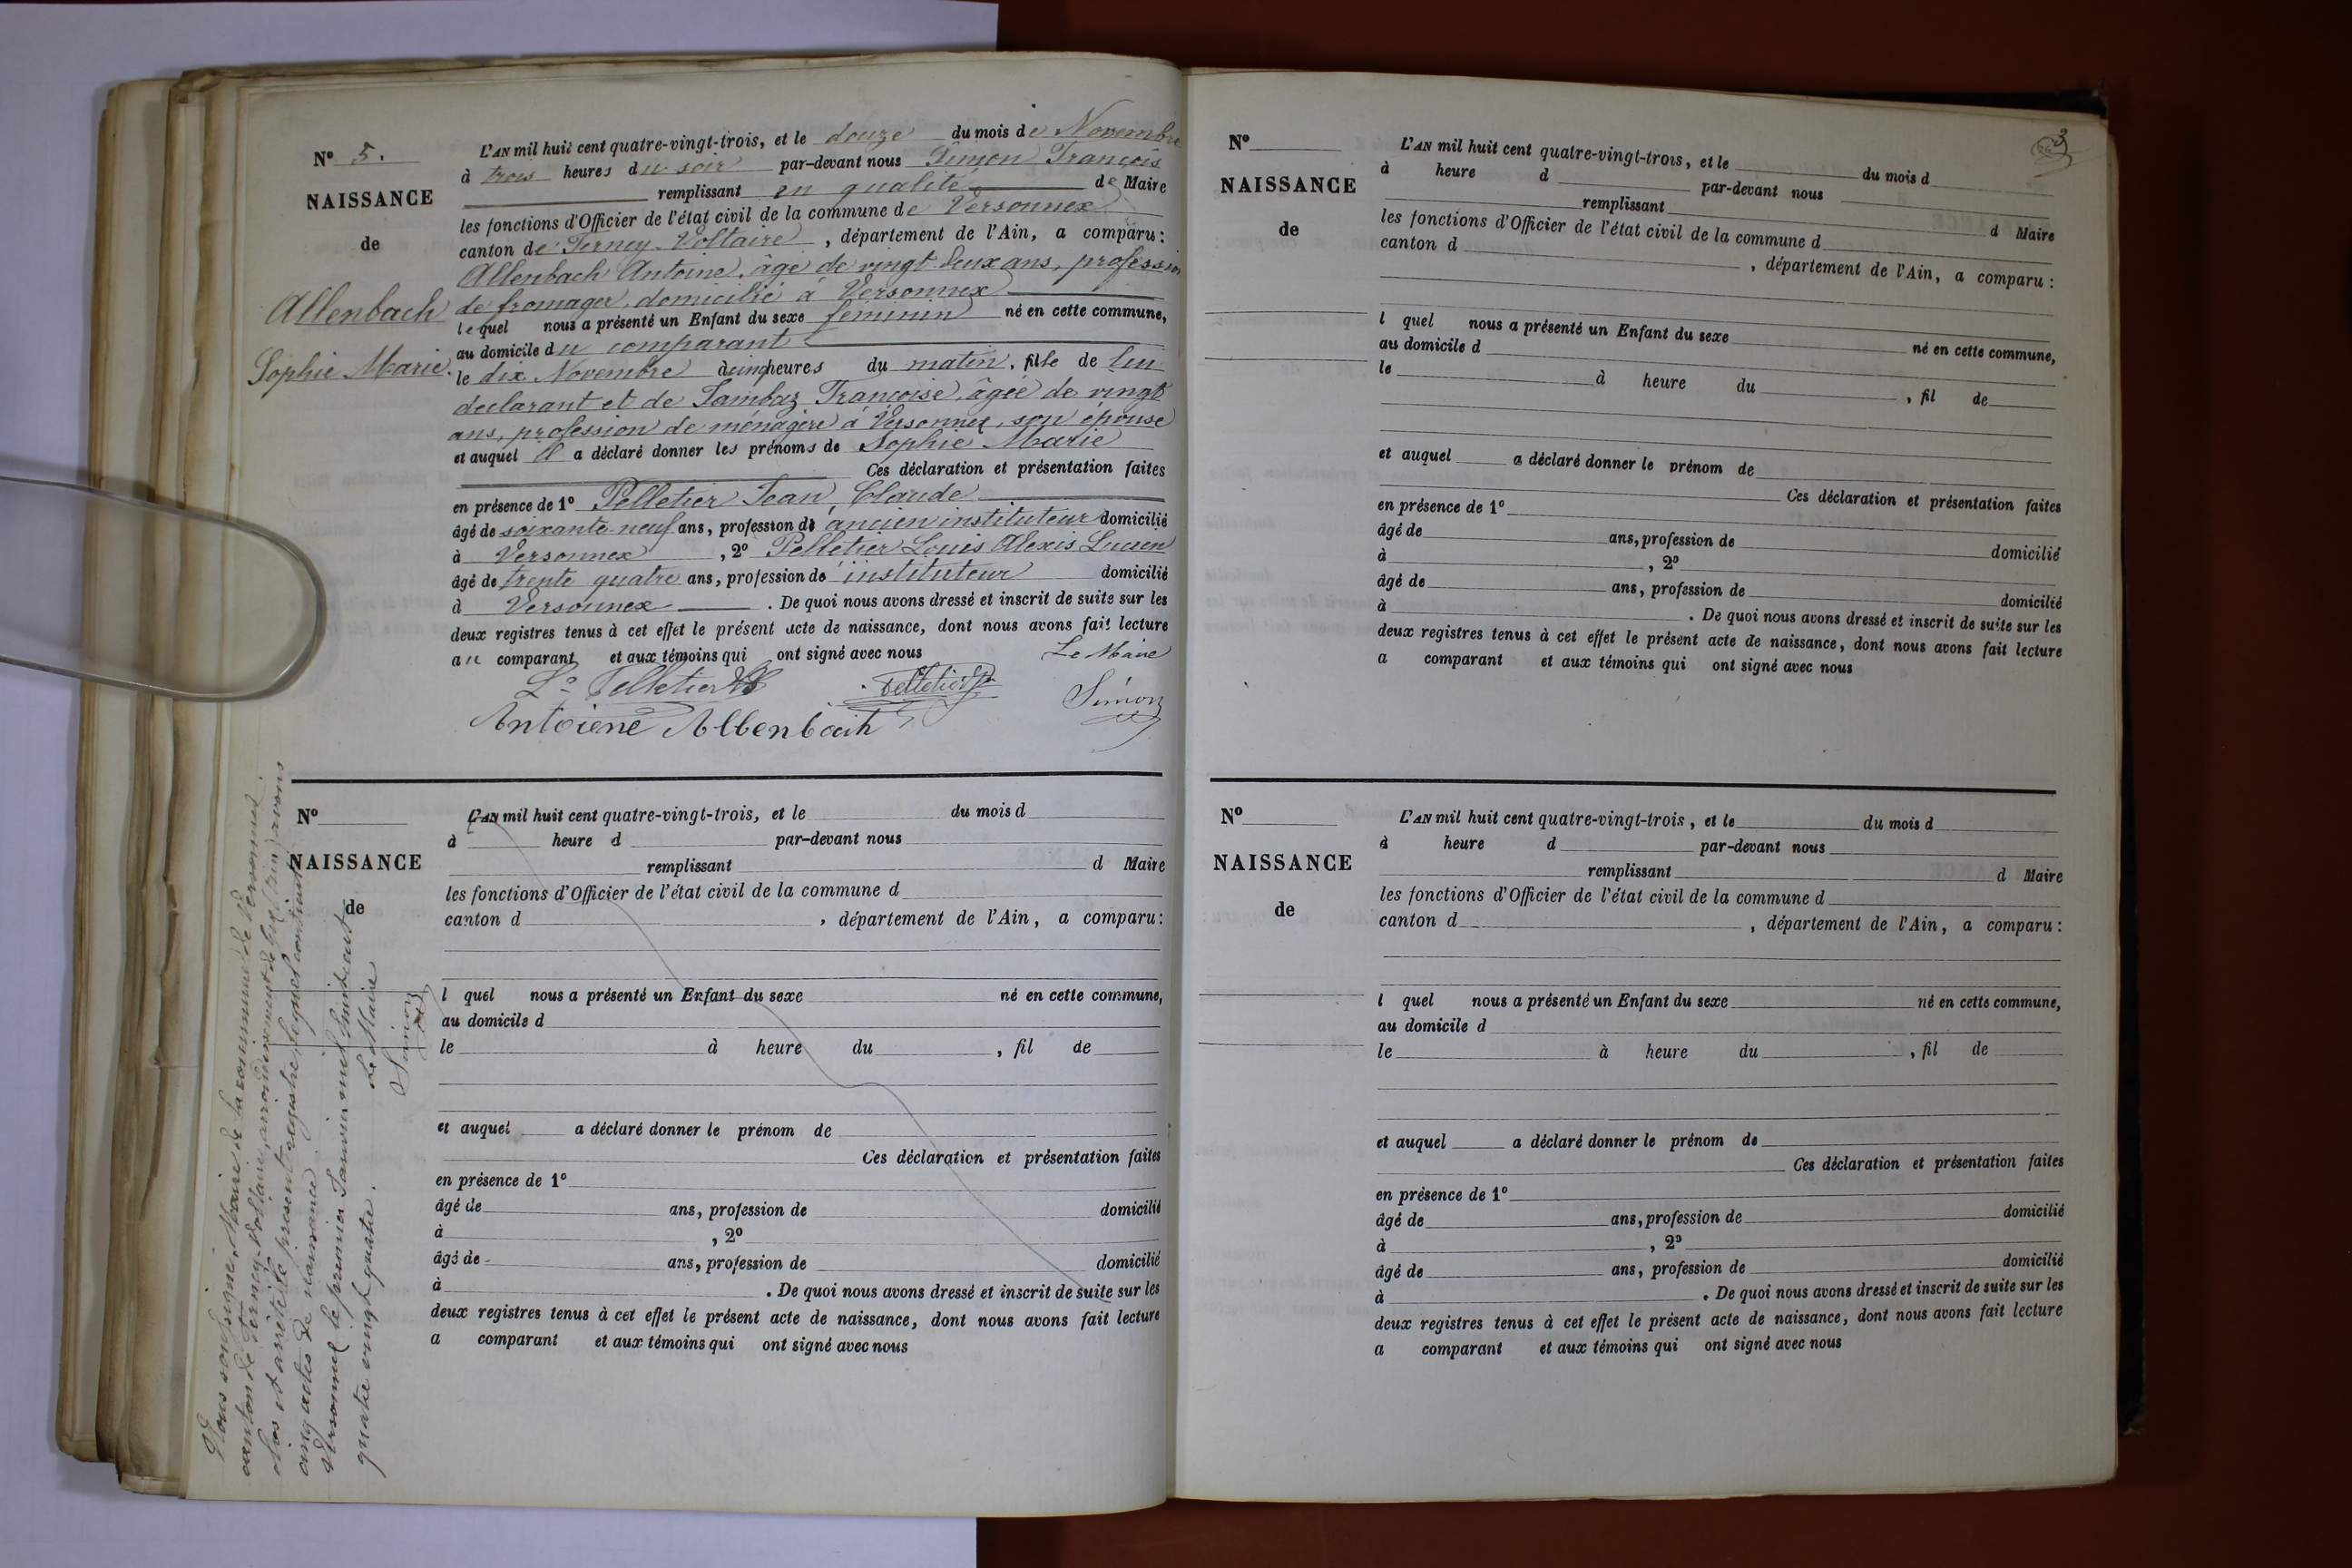 N° 5.
NAISSANCE
de
Allenbach
Sophie Marie.
L'AN mil huit cent quatre-vingt-trois, et le douze du mois de Novembre
à trois heures du soir par-devant nous Simon François
remplissant en qualité de Maire
les fonctions d'Officier de l'état civil de la commune de Versonnex
canton de Ferney-Voltaire, département de l'Ain, a comparu:
Allenbach Antoine, âgé de vingt deux ans, profession
de fromager, domicilié à Versonnex
lequel nous a présenté un Enfant du sexe féminin né en cette commune,
au domicile du comparant
le dix Novembre à cinq heures du matin, fille de lui
déclarant et de Lambaz Françoise, âgée de vingt
ans, profession de ménagère à Versonnex, son épouse
et auquel il a déclaré donner les prénoms de Sophie Marie
Ces déclaration et présentation faites
en présence de 1° Pelletier Jean Claude
âgé de soixante-neuf ans, profession de ancien instituteur domicilié
à Versonnex, 2° Pelletier Louis Alexis Lucien
âgé de trente quatre ans, profession de instituteur domicilié
à Versonnex. De quoi nous avons dressé et inscrit de suite sur les
deux registres tenus à cet effet le présent acte de naissance, dont nous avons fait lecture
au comparant et aux témoins qui ont signé avec nous
Le Maire
Ls Pelletier Pelletier Simon
Antoiene Allenbach
N°
NAISSANCE
de
L'AN mil huit cent quatre-vingt-trois, et le du mois d
à heure d par-devant nous
remplissant d Maire
les fonctions d'Officier de l'état civil de la commune d
canton d , département de l'Ain, a comparu:
l quel nous a présenté un Enfant du sexe né en cette commune,
au domicile d
le à heure du , fil de
et auquel a déclaré donner le prénom de
Ces déclaration et présentation faites
en présence de 1°
âgé de ans, profession de domicilié
à , 2°
âgé de ans, profession de domicilié
à . De quoi nous avons dressé et inscrit de suite sur les
deux registres tenus à cet effet le présent acte de naissance, dont nous avons fait lecture
a comparant et aux témoins qui ont signé avec nous
Nous soussigné, Maire de la commune de Versonnex
canton de Ferney-Voltaire, arrondissement de Gex (Ain) avons
clos et arrêté le présent registre, lequel contient
cinq actes de naissance.
Versonnex le premier Janvier mil huit cent
quatre vingt quatre.
Le Maire
Simon
3
N°
NAISSANCE
de
L'AN mil huit cent quatre-vingt-trois, et le du mois d
à heure d par-devant nous
remplissant d Maire
les fonctions d'Officier de l'état civil de la commune d
canton d , département de l'Ain, a comparu:
l quel nous a présenté un Enfant du sexe né en cette commune,
au domicile d
le à heure du , fil de
et auquel a déclaré donner le prénom de
Ces déclaration et présentation faites
en présence de 1°
âgé de ans, profession de domicilié
à , 2°
âgé de ans, profession de domicilié
à . De quoi nous avons dressé et inscrit de suite sur les
deux registres tenus à cet effet le présent acte de naissance, dont nous avons fait lecture
a comparant et aux témoins qui ont signé avec nous
N°
NAISSANCE
de
L'AN mil huit cent quatre-vingt-trois, et le du mois d
à heure d par-devant nous
remplissant d Maire
les fonctions d'Officier de l'état civil de la commune d
canton d , département de l'Ain, a comparu:
l quel nous a présenté un Enfant du sexe né en cette commune,
au domicile d
le à heure du , fil de
et auquel a déclaré donner le prénom de
Ces déclaration et présentation faites
en présence de 1°
âgé de ans, profession de domicilié
à , 2°
âgé de ans, profession de domicilié
à . De quoi nous avons dressé et inscrit de suite sur les
deux registres tenus à cet effet le présent acte de naissance, dont nous avons fait lecture
a comparant et aux témoins qui ont signé avec nous